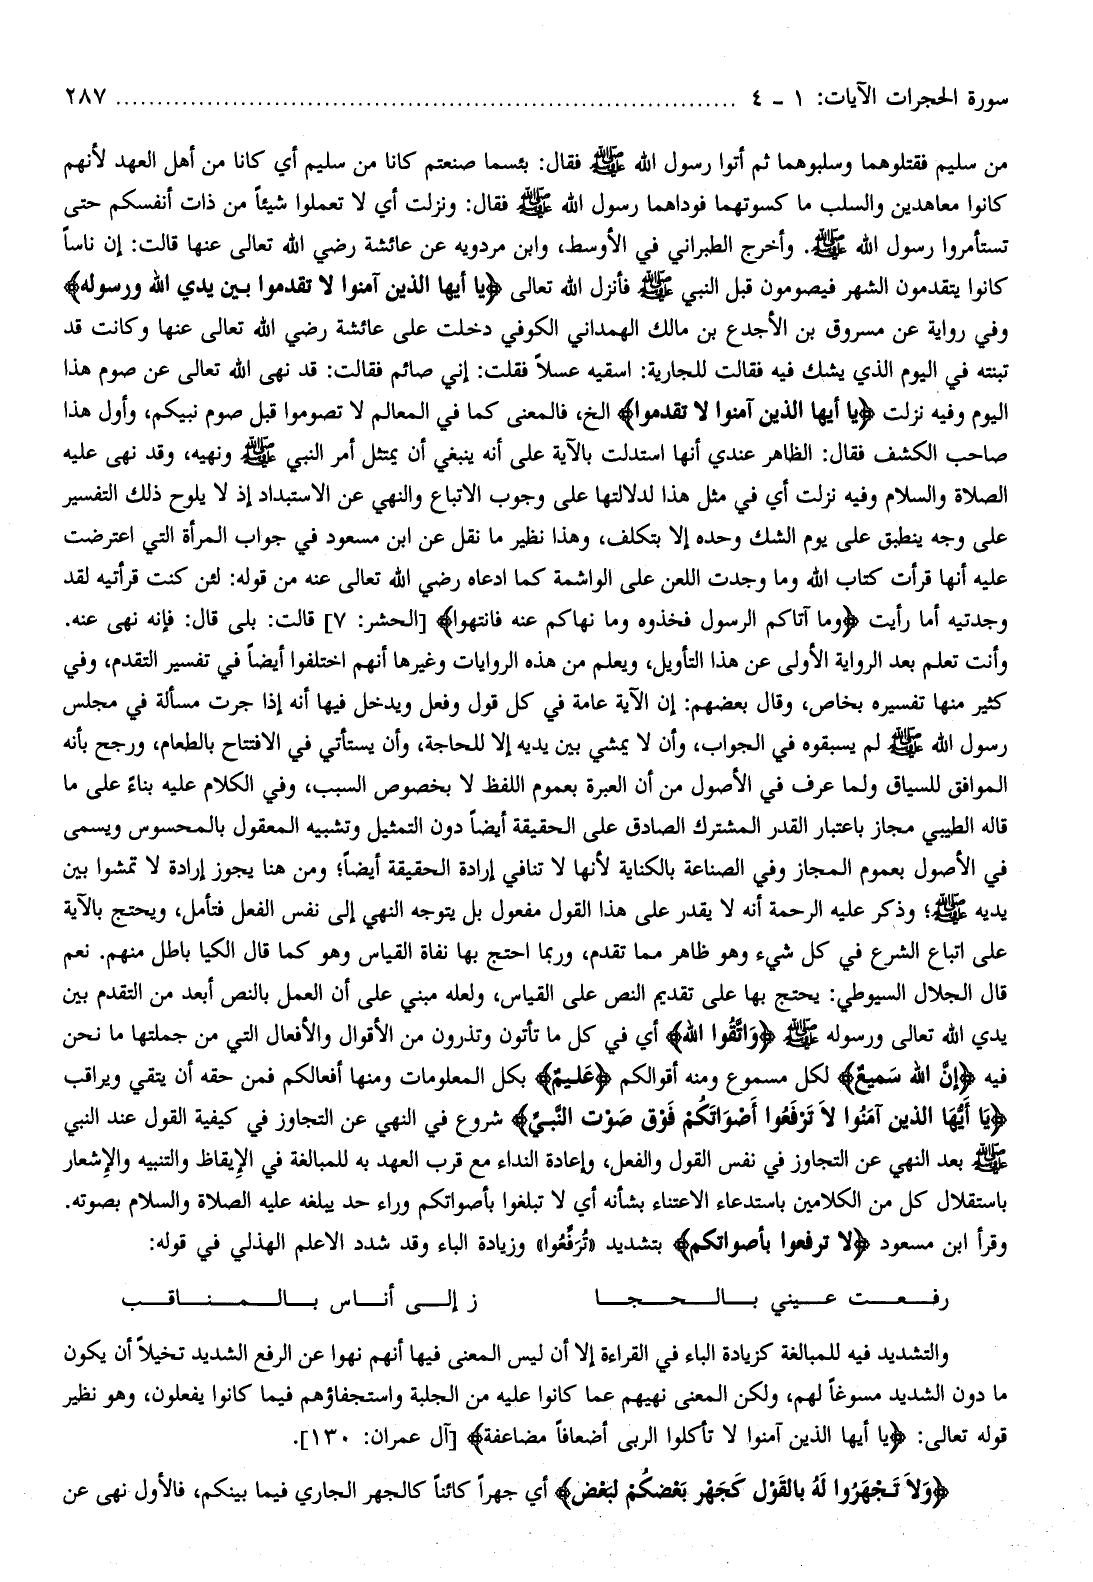 سورة الحجرات الآيات: ١ - ٤ ........................................................................... ٢٨٧
من سليم فقتلوهما وسلبوهما ثم أتوا رسول الله ﷺ فقال: بئسما صنعتم كانا من سليم أي كانا من أهل العهد لأنهم
كانوا معاهدين والسلب ما كسوتهما فوداهما رسول الله ﷺ فقال: ونزلت أي لا تعملوا شيئاً من ذات أنفسكم حتى
تستأمروا رسول الله ﷺ. وأخرج الطبراني في الأوسط، وابن مردويه عن عائشة رضي الله تعالى عنها قالت: إن ناساً
كانوا يتقدمون الشهر فيصومون قبل النبي ﷺ فأنزل الله تعالى ﴿يا أيها الذين آمنوا لا تقدموا بين يدي الله ورسوله﴾
وفي رواية عن مسروق بن الأجدع بن مالك الهمداني الكوفي دخلت على عائشة رضي الله تعالى عنها وكانت قد
تبنته في اليوم الذي يشك فيه فقالت للجارية: اسقيه عسلاً فقلت: إني صائم فقالت: قد نهى الله تعالى عن صوم هذا
اليوم وفيه نزلت ﴿يا أيها الذين آمنوا لا تقدموا﴾ الخ، فالمعنى كما في المعالم لا تصوموا قبل صوم نبيكم، وأول هذا
صاحب الكشف فقال: الظاهر عندي أنها استدلت بالآية على أنه ينبغي أن يمتثل أمر النبي ﷺ ونهيه، وقد نهى عليه
الصلاة والسلام وفيه نزلت أي في مثل هذا لدلالتها على وجوب الاتباع والنهي عن الاستبداد إذ لا يلوح ذلك التفسير
على وجه ينطبق على يوم الشك وحده إلا بتكلف، وهذا نظير ما نقل عن ابن مسعود في جواب المرأة التي اعترضت
عليه أنها قرأت كتاب الله وما وجدت اللعن على الواشمة كما ادعاه رضي الله تعالى عنه من قوله: لئن كنت قرأتيه لقد
وجدتيه أما رأيت ﴿وما آتاكم الرسول فخذوه وما نهاكم عنه فانتهوا﴾ [الحشر: ٧] قالت: بلى قال: فإنه نهى عنه.
وأنت تعلم بعد الرواية الأولى عن هذا التأويل، ويعلم من هذه الروايات وغيرها أنهم اختلفوا أيضاً في تفسير التقدم، وفي
كثير منها تفسيره بخاص، وقال بعضهم: إن الآية عامة في كل قول وفعل ويدخل فيها أنه إذا جرت مسألة في مجلس
رسول الله ﷺ لم يسبقوه في الجواب، وأن لا يمشي بين يديه إلا للحاجة، وأن يستأني في الافتتاح بالطعام، ورجح بأنه
الموافق للسياق ولما عرف في الأصول من أن العبرة بعموم اللفظ لا بخصوص السبب، وفي الكلام عليه بناءً على ما
قاله الطيبي مجاز باعتبار القدر المشترك الصادق على الحقيقة أيضاً دون التمثيل وتشبيه المعقول بالمحسوس ويسمى
في الأصول بعموم المجاز وفي الصناعة بالكناية لأنها لا تنافي إرادة الحقيقة أيضاً؛ ومن هنا يجوز إرادة لا تمشوا بين
يديه ﷺ؛ وذكر عليه الرحمة أنه لا يقدر على هذا القول مفعول بل يتوجه النهي إلى نفس الفعل فتأمل، ويحتج بالآية
على اتباع الشرع في كل شيء وهو ظاهر مما تقدم، وربما احتج بها نفاة القياس وهو كما قال الكيا باطل منهم. نعم
قال الجلال السيوطي: يحتج بها على تقديم النص على القياس، ولعله مبني على أن العمل بالنص أبعد من التقدم بين
يدي الله تعالى ورسوله ﷺ ﴿وَاتَّقُوا الله﴾ أي في كل ما تأتون وتذرون من الأقوال والأفعال التي من جملتها ما نحن
فيه ﴿إنَّ الله سَمِيعٌ﴾ لكل مسموع ومنه أقوالكم ﴿عَلِيمٌ﴾ بكل المعلومات ومنها أفعالكم فمن حقه أن يتقي ويراقب
﴿يَا أَيُّهَا الذين آمَنُوا لاَ تَرْفَعُوا أَصْوَاتَكُمْ فَوْقَ صَوْت النَّبيِّ﴾ شروع في النهي عن التجاوز في كيفية القول عند النبي
ﷺ بعد النهي عن التجاوز في نفس القول والفعل، وإعادة النداء مع قرب العهد به للمبالغة في الإيقاظ والتنبيه والإشعار
باستقلال كل من الكلامين باستدعاء الاعتناء بشأنه أي لا تبلغوا بأصواتكم وراء حد يبلغه عليه الصلاة والسلام بصوته.
وقرأ ابن مسعود ﴿لا ترفعوا بأصواتكم﴾ بتشديد «تُرَفِّعُوا» وزيادة الباء وقد شدد الاعلم الهذلي في قوله:
رفـعـت عـيـني بـالـحـجـا ز إلـى أنـاس بـالـمـنـاقـب
والتشديد فيه للمبالغة كزيادة الباء في القراءة إلا أن ليس المعنى فيها أنهم نهوا عن الرفع الشديد تخيلاً أن يكون
ما دون الشديد مسوغاً لهم، ولكن المعنى نهيهم عما كانوا عليه من الجلبة واستجفاؤهم فيما كانوا يفعلون، وهو نظير
قوله تعالى: ﴿يا أيها الذين آمنوا لا تأكلوا الربى أضعافاً مضاعفة﴾ [آل عمران: ١٣٠].
﴿وَلاَ تَجْهَرُوا لَهُ بالقَوْل كَجَهْر بَعْضكُمْ لبَعْض﴾ أي جهراً كائناً كالجهر الجاري فيما بينكم، فالأول نهى عن